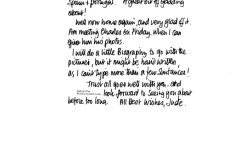 Spain & Portugal. A great bit of gadding
about!
Well now home again, and very glad of it.
I'm meeting Charles on Friday, when I can
give him his photos.
I will do a little Biography to go with the
pictures, but it might be hand written,
as I can't type more than a few sentances!
Trust all goes well with you, and
look forward to seeing you about
before too long. All Best Wishes, Jude.